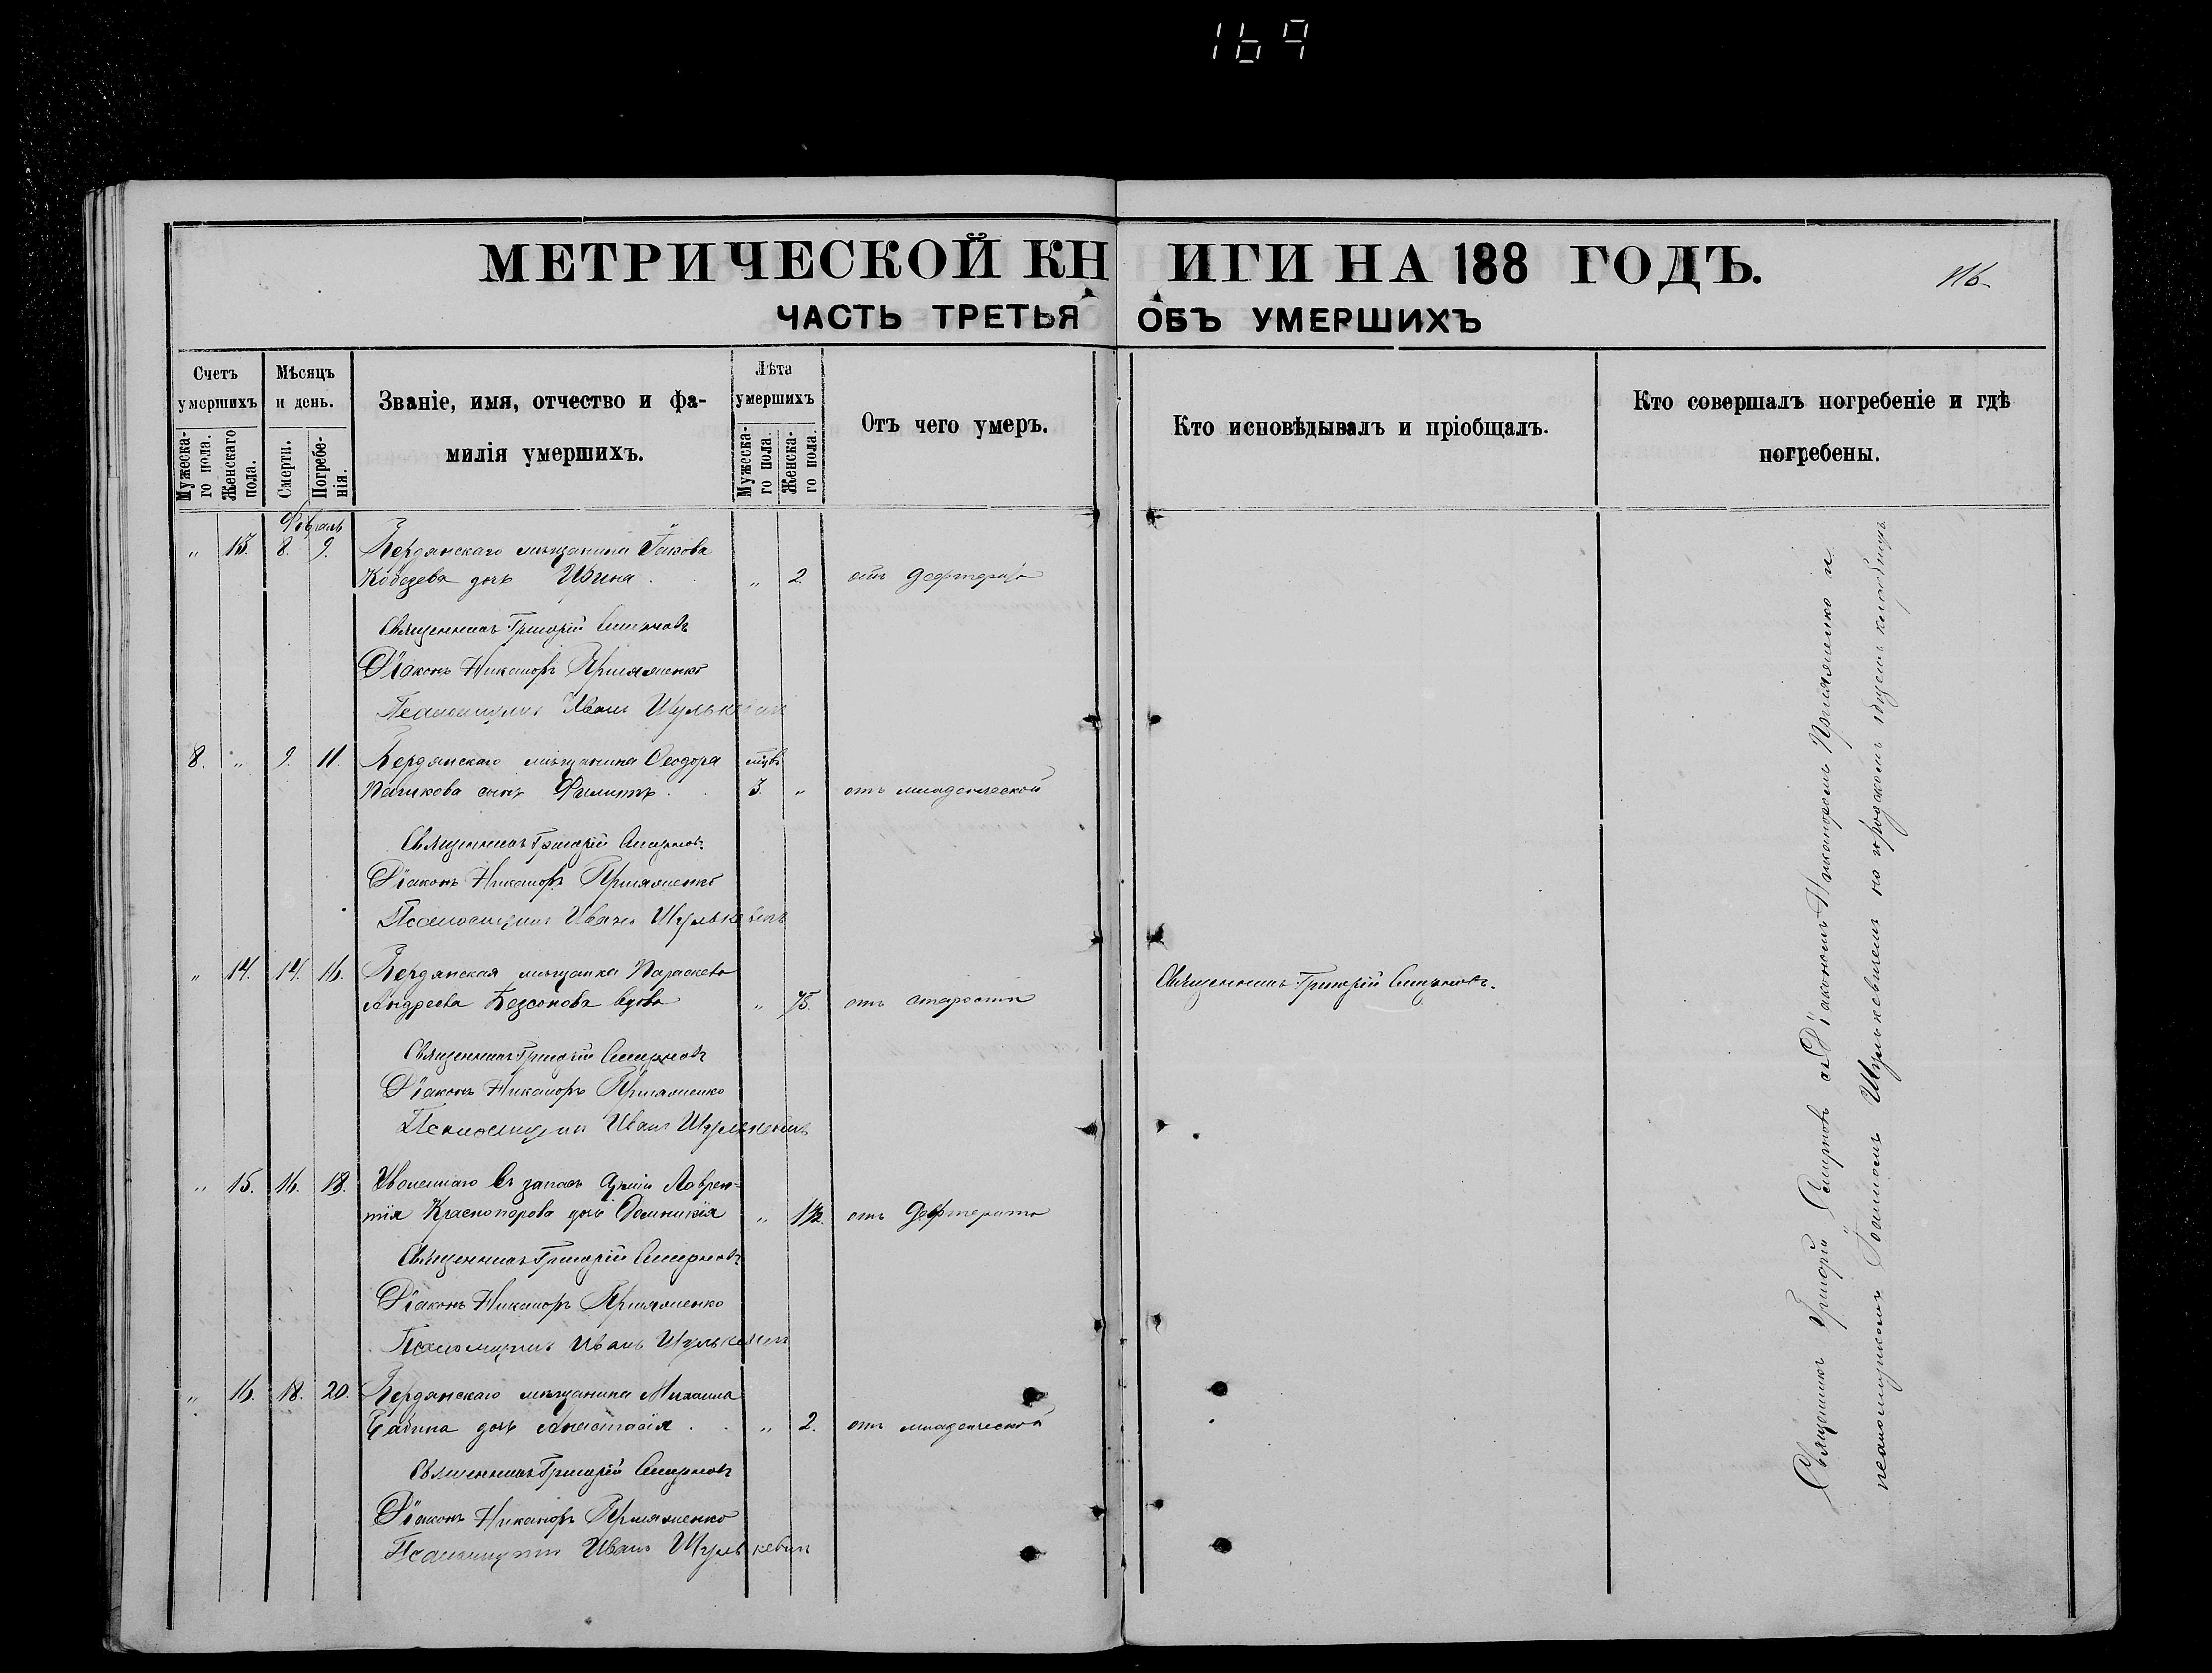 169
МЕТРИЧЕСКОЙ КНИГИ НА 188 ГОДЪ.
116
ЧАСТЬ ТРЕТЬЯ ОБЪ УМЕРШИХЪ
Счетъ умершихъ
Мужеска-
го пола.
Женскаго
пола.
Мѣсяцъ и день.
Смерти.
Погребе-
нія.
Званіе, имя, отчество и фа-
милія умершихъ.
Лѣта умершихъ
Мужеска-
го пола.
Женска-
го пола.
Отъ чего умеръ.
Кто исповѣдывалъ и пріобщалъ.
Кто совершалъ погребеніе и гдѣ
погребены.
Февраль
„ 13. 8. 9. Бердянскаго мѣщанина Іакова
дочь Ирина „ 2 отъ дефтерита
Священникъ Григорій Смирновъ
Діаконъ Никаноръ
Псаломщикъ Иванъ Шулькевичъ
8. „ 9. 11. Бердянскаго мѣщанина Ѳеодора мцв
сынъ Филиппъ 3. „ отъ младенческой
Священникъ Григорій Смирновъ
Діаконъ Никаноръ
Псаломщикъ Иванъ Шулькевичъ
„ 14. 14. 16. Бердянская мѣщанка Параскева
Андреева Безсонова вдова „ 75. отъ старости
Священникъ Григорій Смирновъ.
Священникъ Григорій Смирновъ
Діаконъ Никаноръ
Псаломщикъ Иванъ Шулькевичъ
„ 15. 16. 18. Уволеннаго въ запасъ арміи Лаврен-
тія Краснопорова дочь Домникія „ 1 1/2. отъ дефтерита
Священникъ Григорій Смирновъ
Діаконъ Никаноръ
Псаломщикъ Иванъ Шулькевичъ
„ 16. 18. 20. Бердянскаго мѣщанина Михаила
дочь Анастасія „ 2. отъ младенческой
Священникъ Григорій Смирновъ
Діаконъ Никаноръ
Псаломщикъ Иванъ Шулькевичъ
Священникъ Григорій Смирновъ съ Діакономъ Никаноромъ и
псаломщикомъ Іоанномъ Шулькевичемъ на городскомъ общемъ кладбищѣ